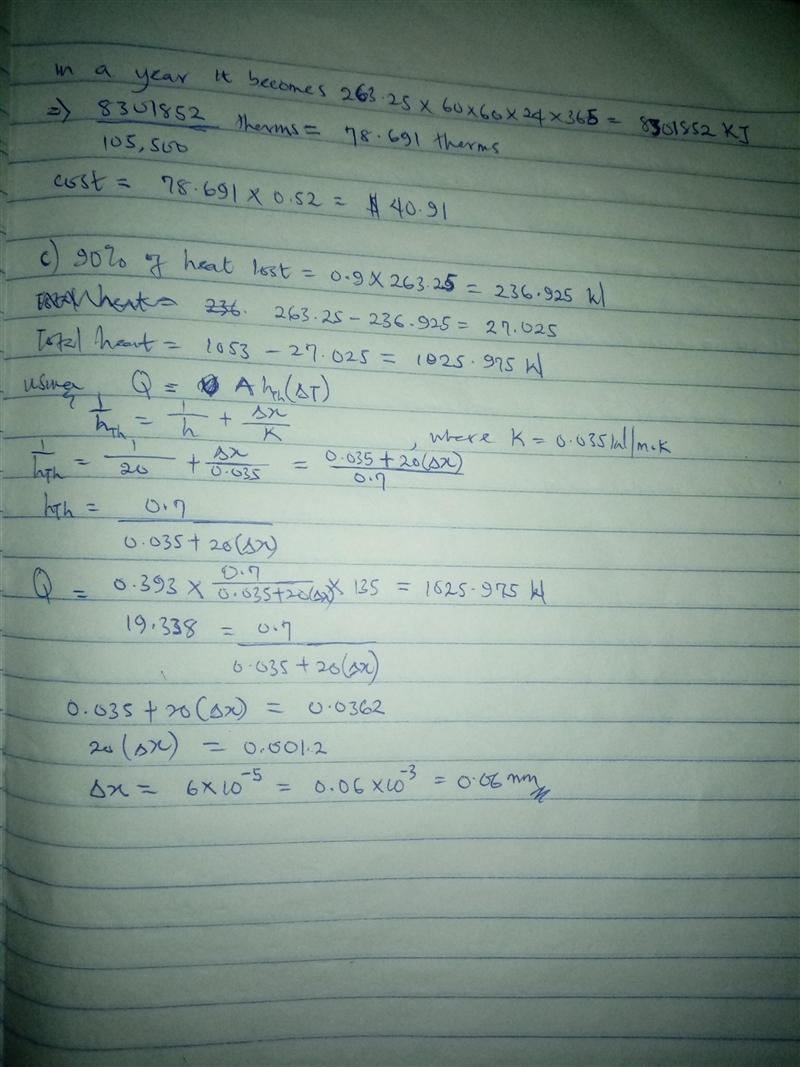 in a year it becomes 263.25 × 60×60×24×365 = 8301852 KJ
=> 8301852/105,500 therms = 78.691 therms
cost = 78.691 × 0.52 = $ 40.91
c) 90% of heat lost = 0.9 × 263.25 = 236.925 W
heat = 236. 263.25 - 236.925 = 27.025
Total heat = 1053 - 27.025 = 1025.975 W
using, Q = A hTh (ΔT)
1/hTh = 1/h + Δx/K , where K = 0.035 W/m.K
1/hTh = 1/20 + Δx/0.035 = 0.035 + 20(Δx)/0.7
hTh = 0.7/0.035 + 20(Δx)
Q = 0.393 × 0.7/0.035+20(Δx) × 135 = 1025.975 W
19.338 = 0.7/0.035 + 20(Δx)
0.035 + 20(Δx) = 0.0362
20(Δx) = 0.0012
Δx = 6×10⁻⁵ = 0.06 ×10⁻³ = 0.06 mm